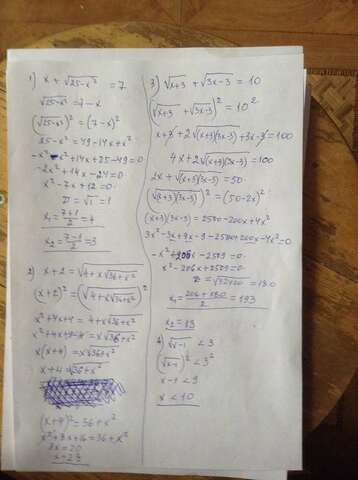 1) x + √(25-x²) = 7
√(25-x²) = 7-x
(√(25-x²))² = (7-x)²
25-x² = 49-14x+x²
-x²-x²+14x+25-49=0
-2x²+14x-24=0
x²-7x+12=0
D = √1 = 1
x₁ = (7+1)/2 = 4
x₂ = (7-1)/2 = 3
2) x+2 = √(4+x√(36+x²))
(x+2)² = (√(4+x√(36+x²)))²
x²+4x+4 = 4+x√(36+x²)
x²+4x+4-4 = x√(36+x²)
x(x+4) = x√(36+x²)
x+4 = √(36+x²)
(x+4)² = 36+x²
x²+8x+16=36+x²
8x=20
3) √(x+3) + √(3x-3) = 10
(√(x+3) + √(3x-3))² = 10²
x+3+2√((x+3)(3x-3))+3x-3=100
4x+2√((x+3)(3x-3))=100
2x+√((x+3)(3x-3))=50
(√((x+3)(3x-3)))² = (50-2x)²
(x+3)(3x-3)=2500-200x+4x²
3x²-3x+9x-9-2500+200x-4x²=0
-x²+206x-2509=0
x²-206x+2509=0
D=√32400=180
x₁ = (206+180)/2 = 193
x₂=13
4) √(x-1) < 3
(√(x-1))² < 3²
x-1<9
x<10